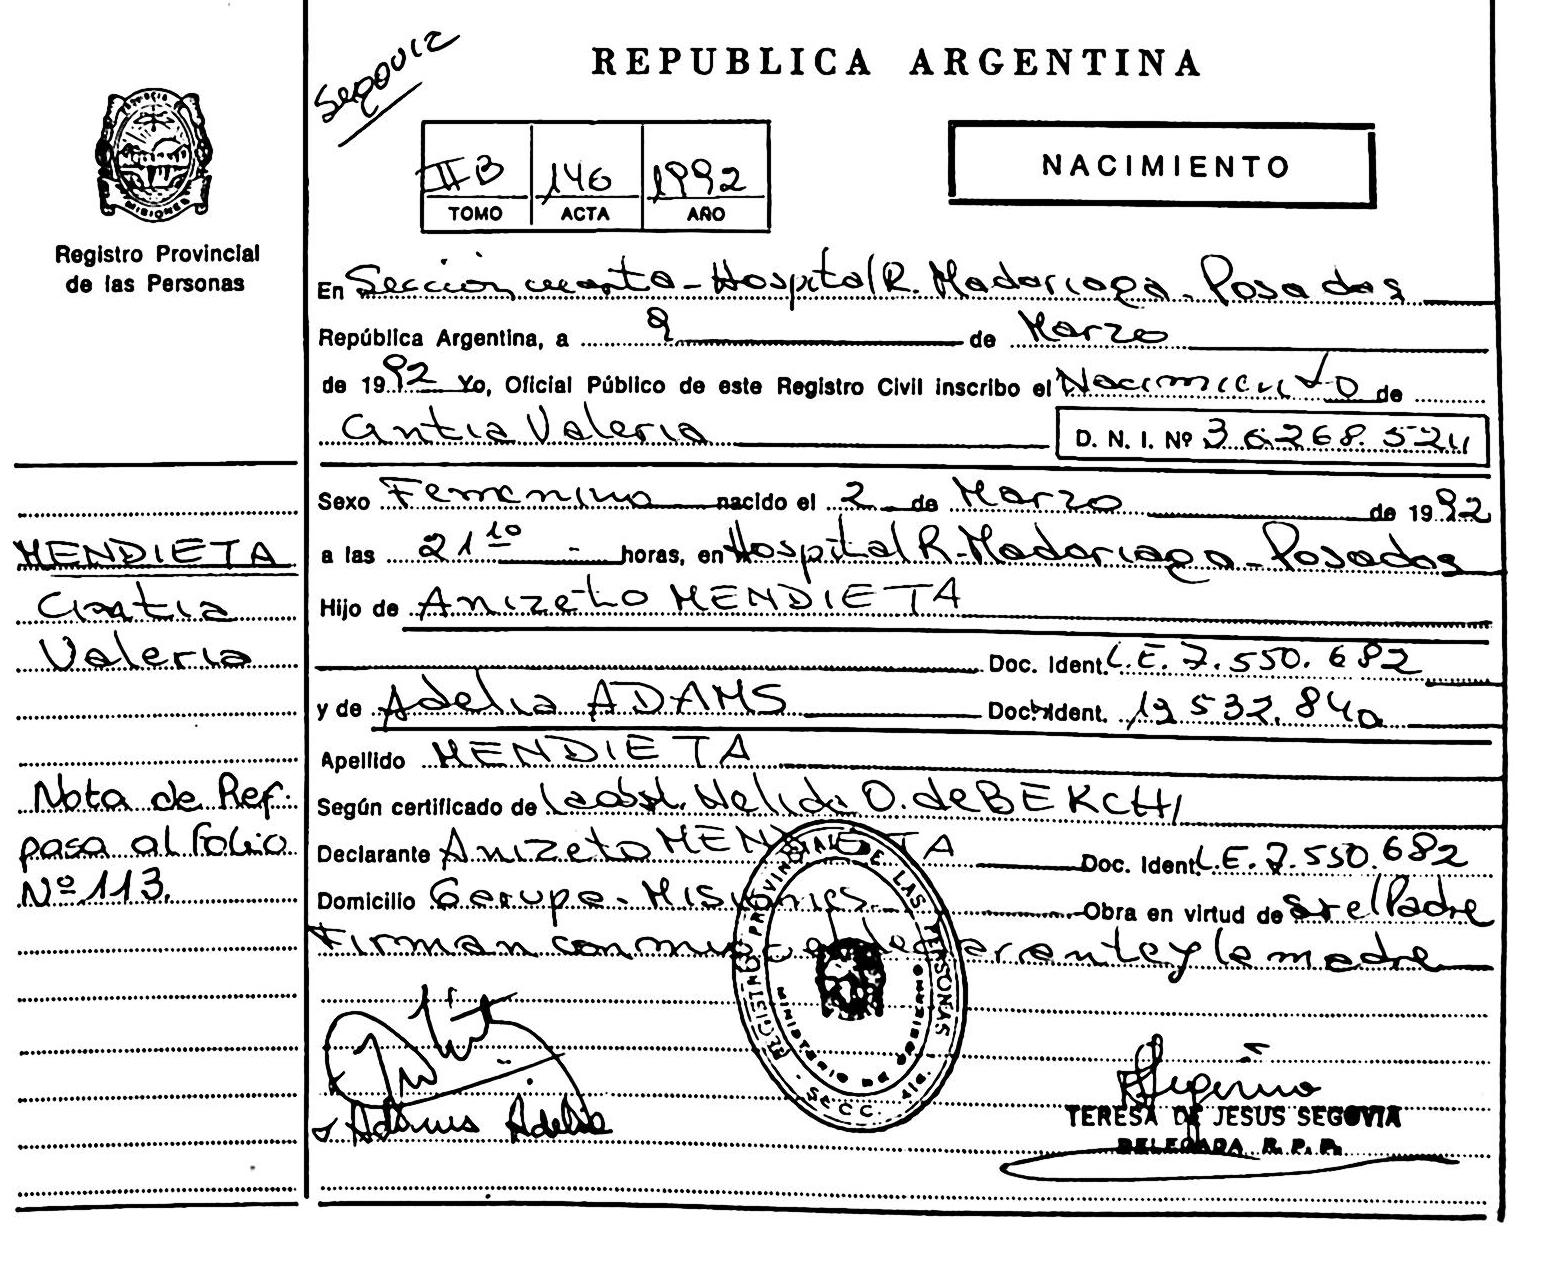 Segovia
REPUBLICA ARGENTINA
IIB 146 1992
TOMO ACTA AÑO
NACIMIENTO
MISIONES
Registro Provincial
de las Personas
En Sección cuarta - Hospital R. Madariaga - Posadas
República Argentina, a 9 de Marzo
de 1992 Yo, Oficial Público de este Registro Civil inscribo el Nacimiento de
Cintia Valeria D. N. I. Nº 36.268.524
Sexo Femenino nacido el 2 de Marzo de 1992
a las 21 10 horas, en Hospital R. Madariaga - Posadas
Hijo de Anizeto MENDIETA
Doc. Ident. L.E. 7.550.682
y de Adelia ADAMS Doc. Ident. 12.532.840
Apellido MENDIETA
Según certificado de la obst. Nelida O. de BEKCHI
Declarante Anizeto MENDIETA Doc. Ident. L.E. 7.550.682
Domicilio Gerupa - Misiones Obra en virtud de Ser el Padre
Firman conmigo el declarante y la madre
MENDIETA
Cintia
Valeria
Nota de Ref.
pasa al folio
Nº 113.
REGISTRO PROVINCIAL DE LAS PERSONAS
MINISTERIO DE GOBIERNO
- SECC. 4ta. -
Adams Adelia
TERESA DE JESUS SEGOVIA
DELEGADA R. P. P.